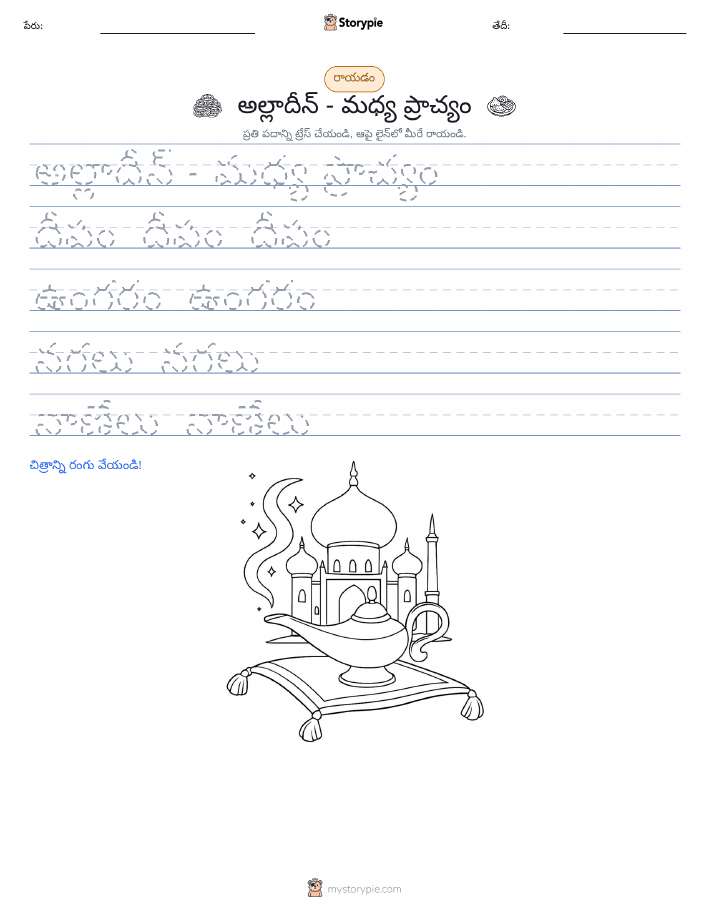 పేరు:
Storypie
తేదీ:
రాయడం
అల్లాదీన్ - మధ్య ప్రాచ్యం
ప్రతి పదాన్ని ట్రేస్ చేయండి, ఆపై లైన్‌లో మీరే రాయండి.
అల్లాదీన్ - మధ్య ప్రాచ్యం
దీపం దీపం దీపం
ఉంగరం ఉంగరం
నగలు నగలు
నాణేలు నాణేలు
చిత్రాన్ని రంగు వేయండి!
mystorypie.com